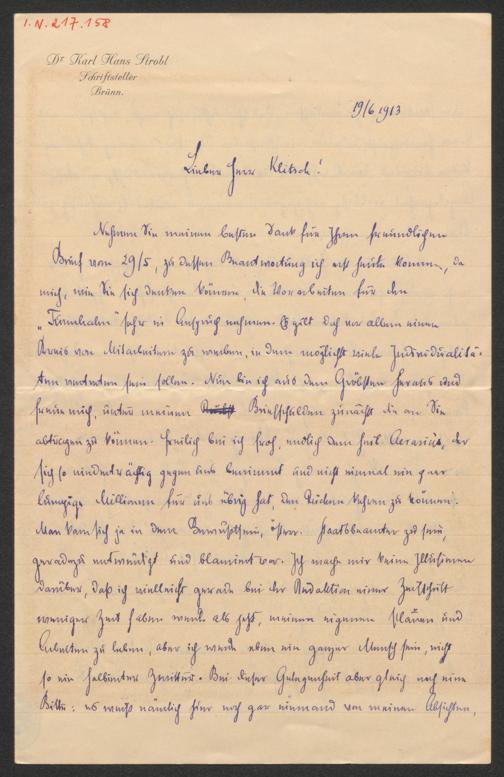 I.N. 217.158
Dr Karl Hans Strobl
Schriftsteller
Brünn.
19/6 1913
Lieber Herr Klitsch!
Nehmen Sie meinen besten Dank für Ihren freundlichen
Brief vom 29/5, zu dessen Beantwortung ich erst heute komme, da
mich, wie Sie sich denken können, die Vorarbeiten für den
„Turmhahn" sehr in Anspruch nehmen. Es gilt doch vor allem einen
Kreis von Mitarbeitern zu werben, in dem möglichst viele Individualitä-
ten vertreten sein sollen. Nun bin ich aus dem Gröbsten heraus und
freue mich, unter meinen Briefschulden zunächst die an Sie
abtragen zu können. Freilich bin ich froh, endlich dem heil. Aerarius, der
sich so niederträchtig gegen uns benimmt und nicht einmal ein paar
lumpige Millionen für uns übrig hat, den Rücken kehren zu können.
Man kam sich ja in dem Bewusstsein, österr. Staatsbeamter zu sein,
geradezu entwürdigt und blamiert vor. Ich mache mir keine Illusionen
darüber, daß ich vielleicht gerade bei der Redaktion einer Zeitschrift
weniger Zeit haben werde als jetzt, meinen eigenen Plänen und
Arbeiten zu leben, aber ich werde eben ein ganzer Mensch sein, nicht
so ein halbierter Zwitter. Bei dieser Gelegenheit aber gleich noch eine
Bitte: es weiß nämlich hier noch gar niemand von meinen Absichten,